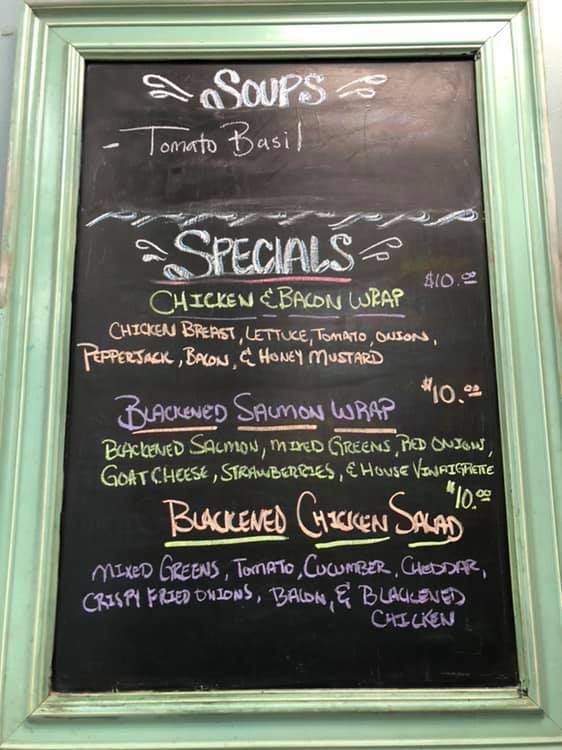 SOUPS
- Tomato Basil
SPECIALS
$10.00
CHICKEN & BACON WRAP
CHICKEN BREAST, LETTUCE, TOMATO, ONION,
PEPPERJACK, BACON, & HONEY MUSTARD
$10.00
BLACKENED SALMON WRAP
BLACKENED SALMON, MIXED GREENS, RED ONION,
GOAT CHEESE, STRAWBERRIES, & HOUSE VINAIGRETTE
$10.00
BLACKENED CHICKEN SALAD
MIXED GREENS, TOMATO, CUCUMBER, CHEDDAR,
CRISPY FRIED ONIONS, BACON, & BLACKENED
CHICKEN